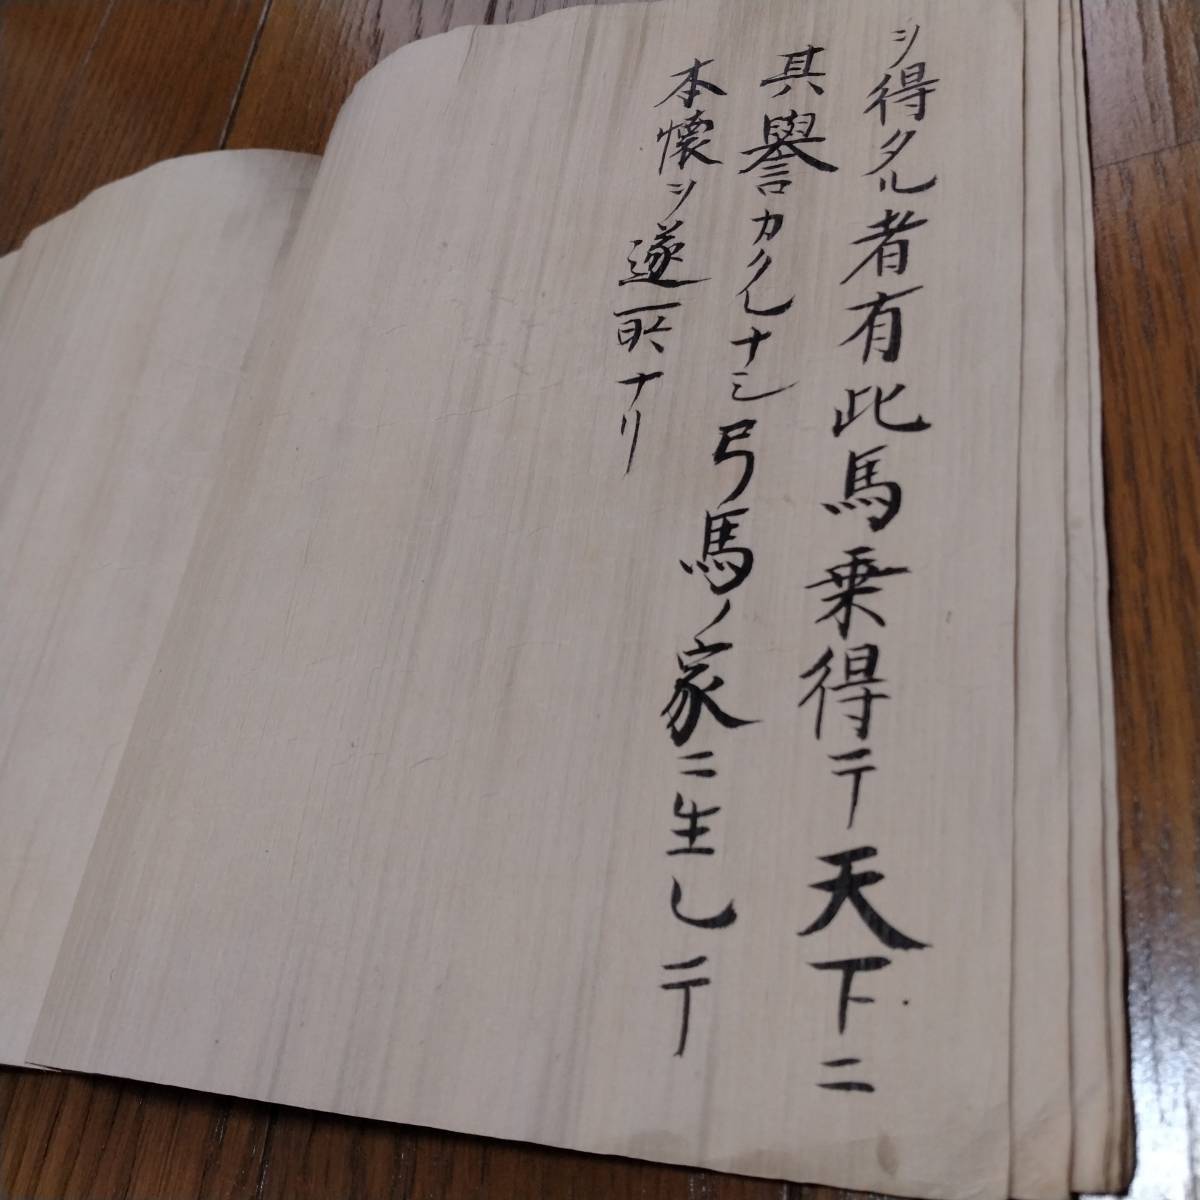 ヲ得タル者有此馬乗得テ天下ニ
其譽カクレナシ弓馬ノ家ニ生レテ
本懐ヲ遂所ナリ